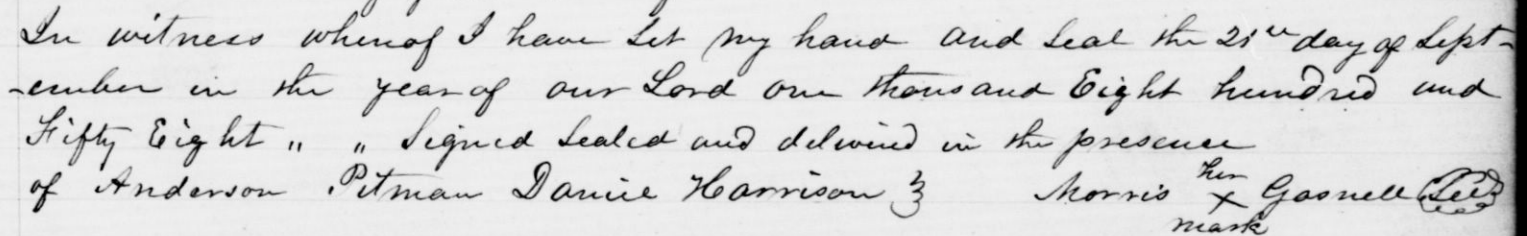 In witness whereof I have set my hand and seal the 21st day of Sept-
-ember in the year of our Lord one thousand Eight hundred and
Fifty Eight " " Signed sealed and delivered in the presence
of Anderson Pitman Daniel Harrison } Morris her X mark Gosnell Seal